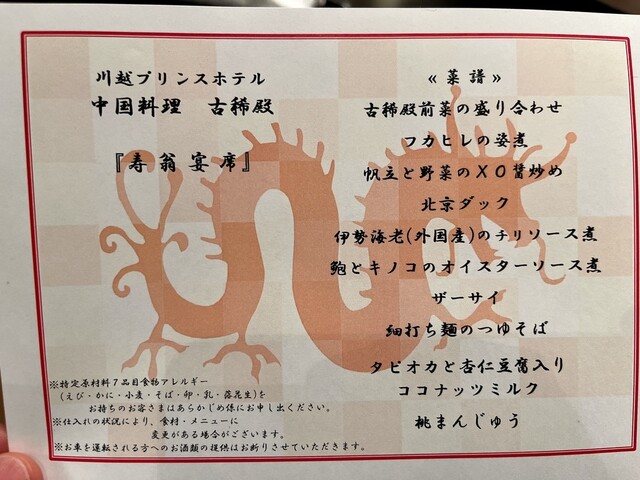 川越プリンスホテル
中国料理 古稀殿
『寿翁宴席』
≪菜譜≫
古稀殿前菜の盛り合わせ
フカヒレの姿煮
帆立と野菜のXO醤炒め
北京ダック
伊勢海老(外国産)のチリソース煮
鮑とキノコのオイスターソース煮
ザーサイ
細打ち麺のつゆそば
タピオカと杏仁豆腐入り
ココナッツミルク
桃まんじゅう
※特定原材料7品目食物アレルギー
(えび・かに・小麦・そば・卵・乳・落花生)を
お持ちのお客さまはあらかじめ係にお申し出ください。
※仕入れの状況により、食材・メニューに
変更がある場合がございます。
※お車を運転される方へのお酒類の提供はお断りさせていただきます。